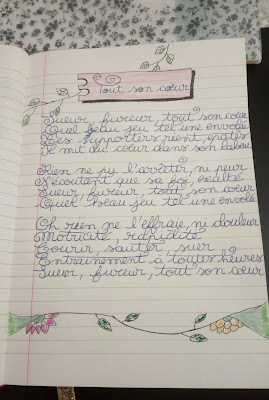 Tout son cœur
Sueur, fureur, tout son cœur
Quel beau jeu tel une envolée
Les supporters épatés
Il mit du cœur dans son labeur
Rien ne pu l'arrêter, ni peur
N'écoutant que sa foi, exalté
Sueur, fureur, tout son cœur
Quel beau jeu tel une envolée
Oh rien ne l'effraie, ni douleur
Motricité, rapidité
Courir, sauter, suer
Entrainement à toutes heures
Sueur, fureur, tout son cœur